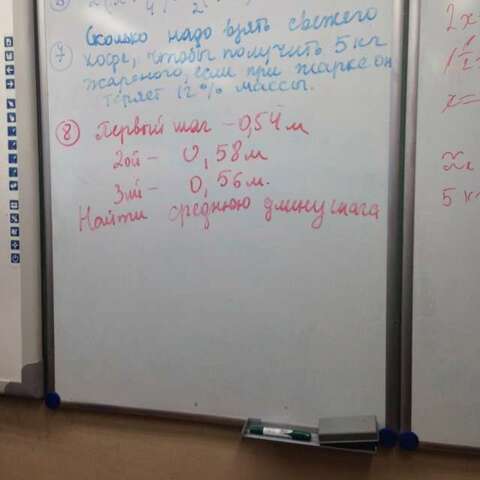 7 Сколько надо взять свежего
кофе, чтобы получить 5 кг
жареного, если при жарке он
теряет 12% массы.
8 Первый шаг – 0,54 м
2ой – 0,58 м
3ий – 0,56 м.
Найти среднюю длину шага
2x
x=
5 к